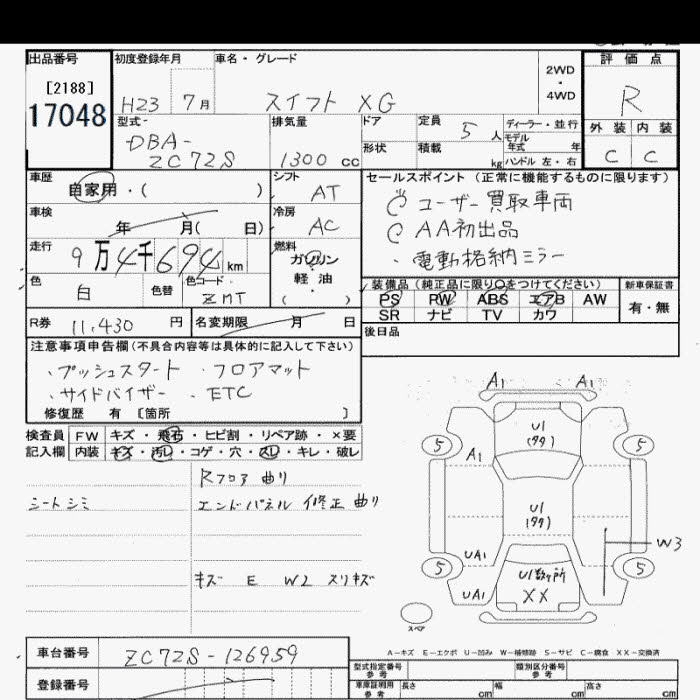 出品番号 初度登録年月 車名・グレード 2WD・4WD 評価点
[2188]
17048 H23 7月 スイフト XG R
型式 排気量 ドア 定員 5人 ディーラー・並行 外装 内装
DBA- 形状 積載 kg モデル年式 年
ZC72S 1300 cc ハンドル 左・右 C C
車歴 シフト セールスポイント (正常に機能するものに限ります)
自家用・( ) AT ユーザー買取車両
車検 冷房 AA初出品
年 月( 日) AC ・電動格納ミラー
走行 燃料
9万4千694km ガソリン
色 色替 色コード 軽油 装備品(純正品に限り○をつけてください) 新車保証書
白 ZMT ( ) PS PW ABS エアB AW 有・無
SR ナビ TV カワ
R券 11,430円 名変期限 月 日 後日品
注意事項申告欄(不具合内容等は具体的に記入して下さい)
・プッシュスタート ・フロアマット
・サイドバイザー ・ETC
修復歴 有 [箇所 ]
検査員 FW キズ・飛石・ヒビ割・リペア跡・×要
記入欄 内装 キズ・汚レ・コゲ・穴・スレ・キレ・破レ
Rフロア 曲り
シートシミ エンドパネル 修正 曲り
キズ E W2 スリキズ
A1 A1
U1
(タタ)
5 5
A1
U1
(タタ)
W3
UA1
5 U1数ヶ所 5
UA1 XX
スペア
A−キズ E−エクボ U−凹み W−補修跡 S−サビ C−腐食 XX−交換済
車台番号 ZC72S-126959
型式指定番号 参考 類別区分番号 参考
登録番号 車庫証明用 参考 長さ cm 幅 cm 高さ cm